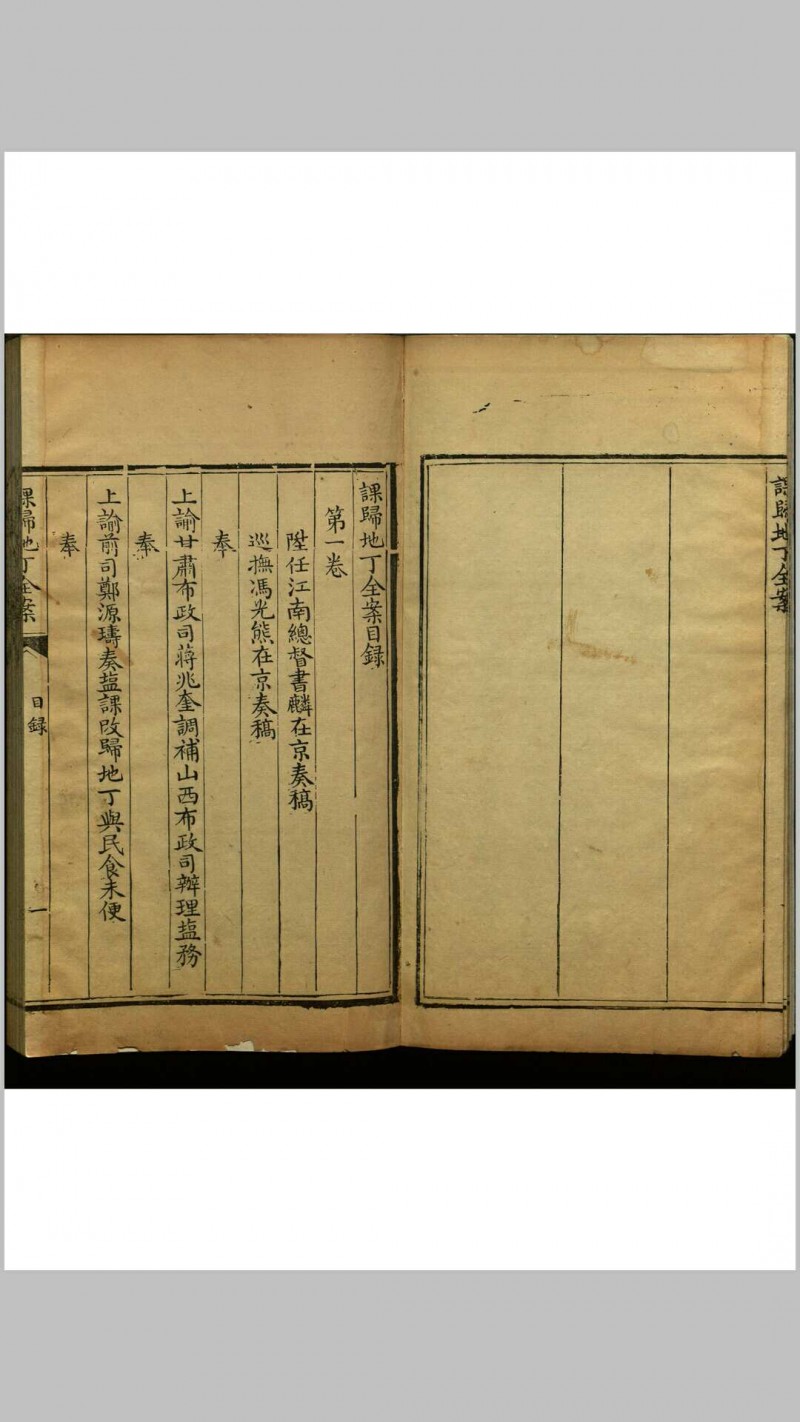 課歸地丁全案
課歸地丁全案目録
第一卷
陞任江南總督書麟在京奏稿
巡撫馮光熊在京奏稿
奉
上諭甘肅布政司蔣兆奎調補山西布政司辦理盐務
奉
上諭前司鄭源璹奏盐課改歸地丁與民食未便
奉
課歸地丁全案
目録
一